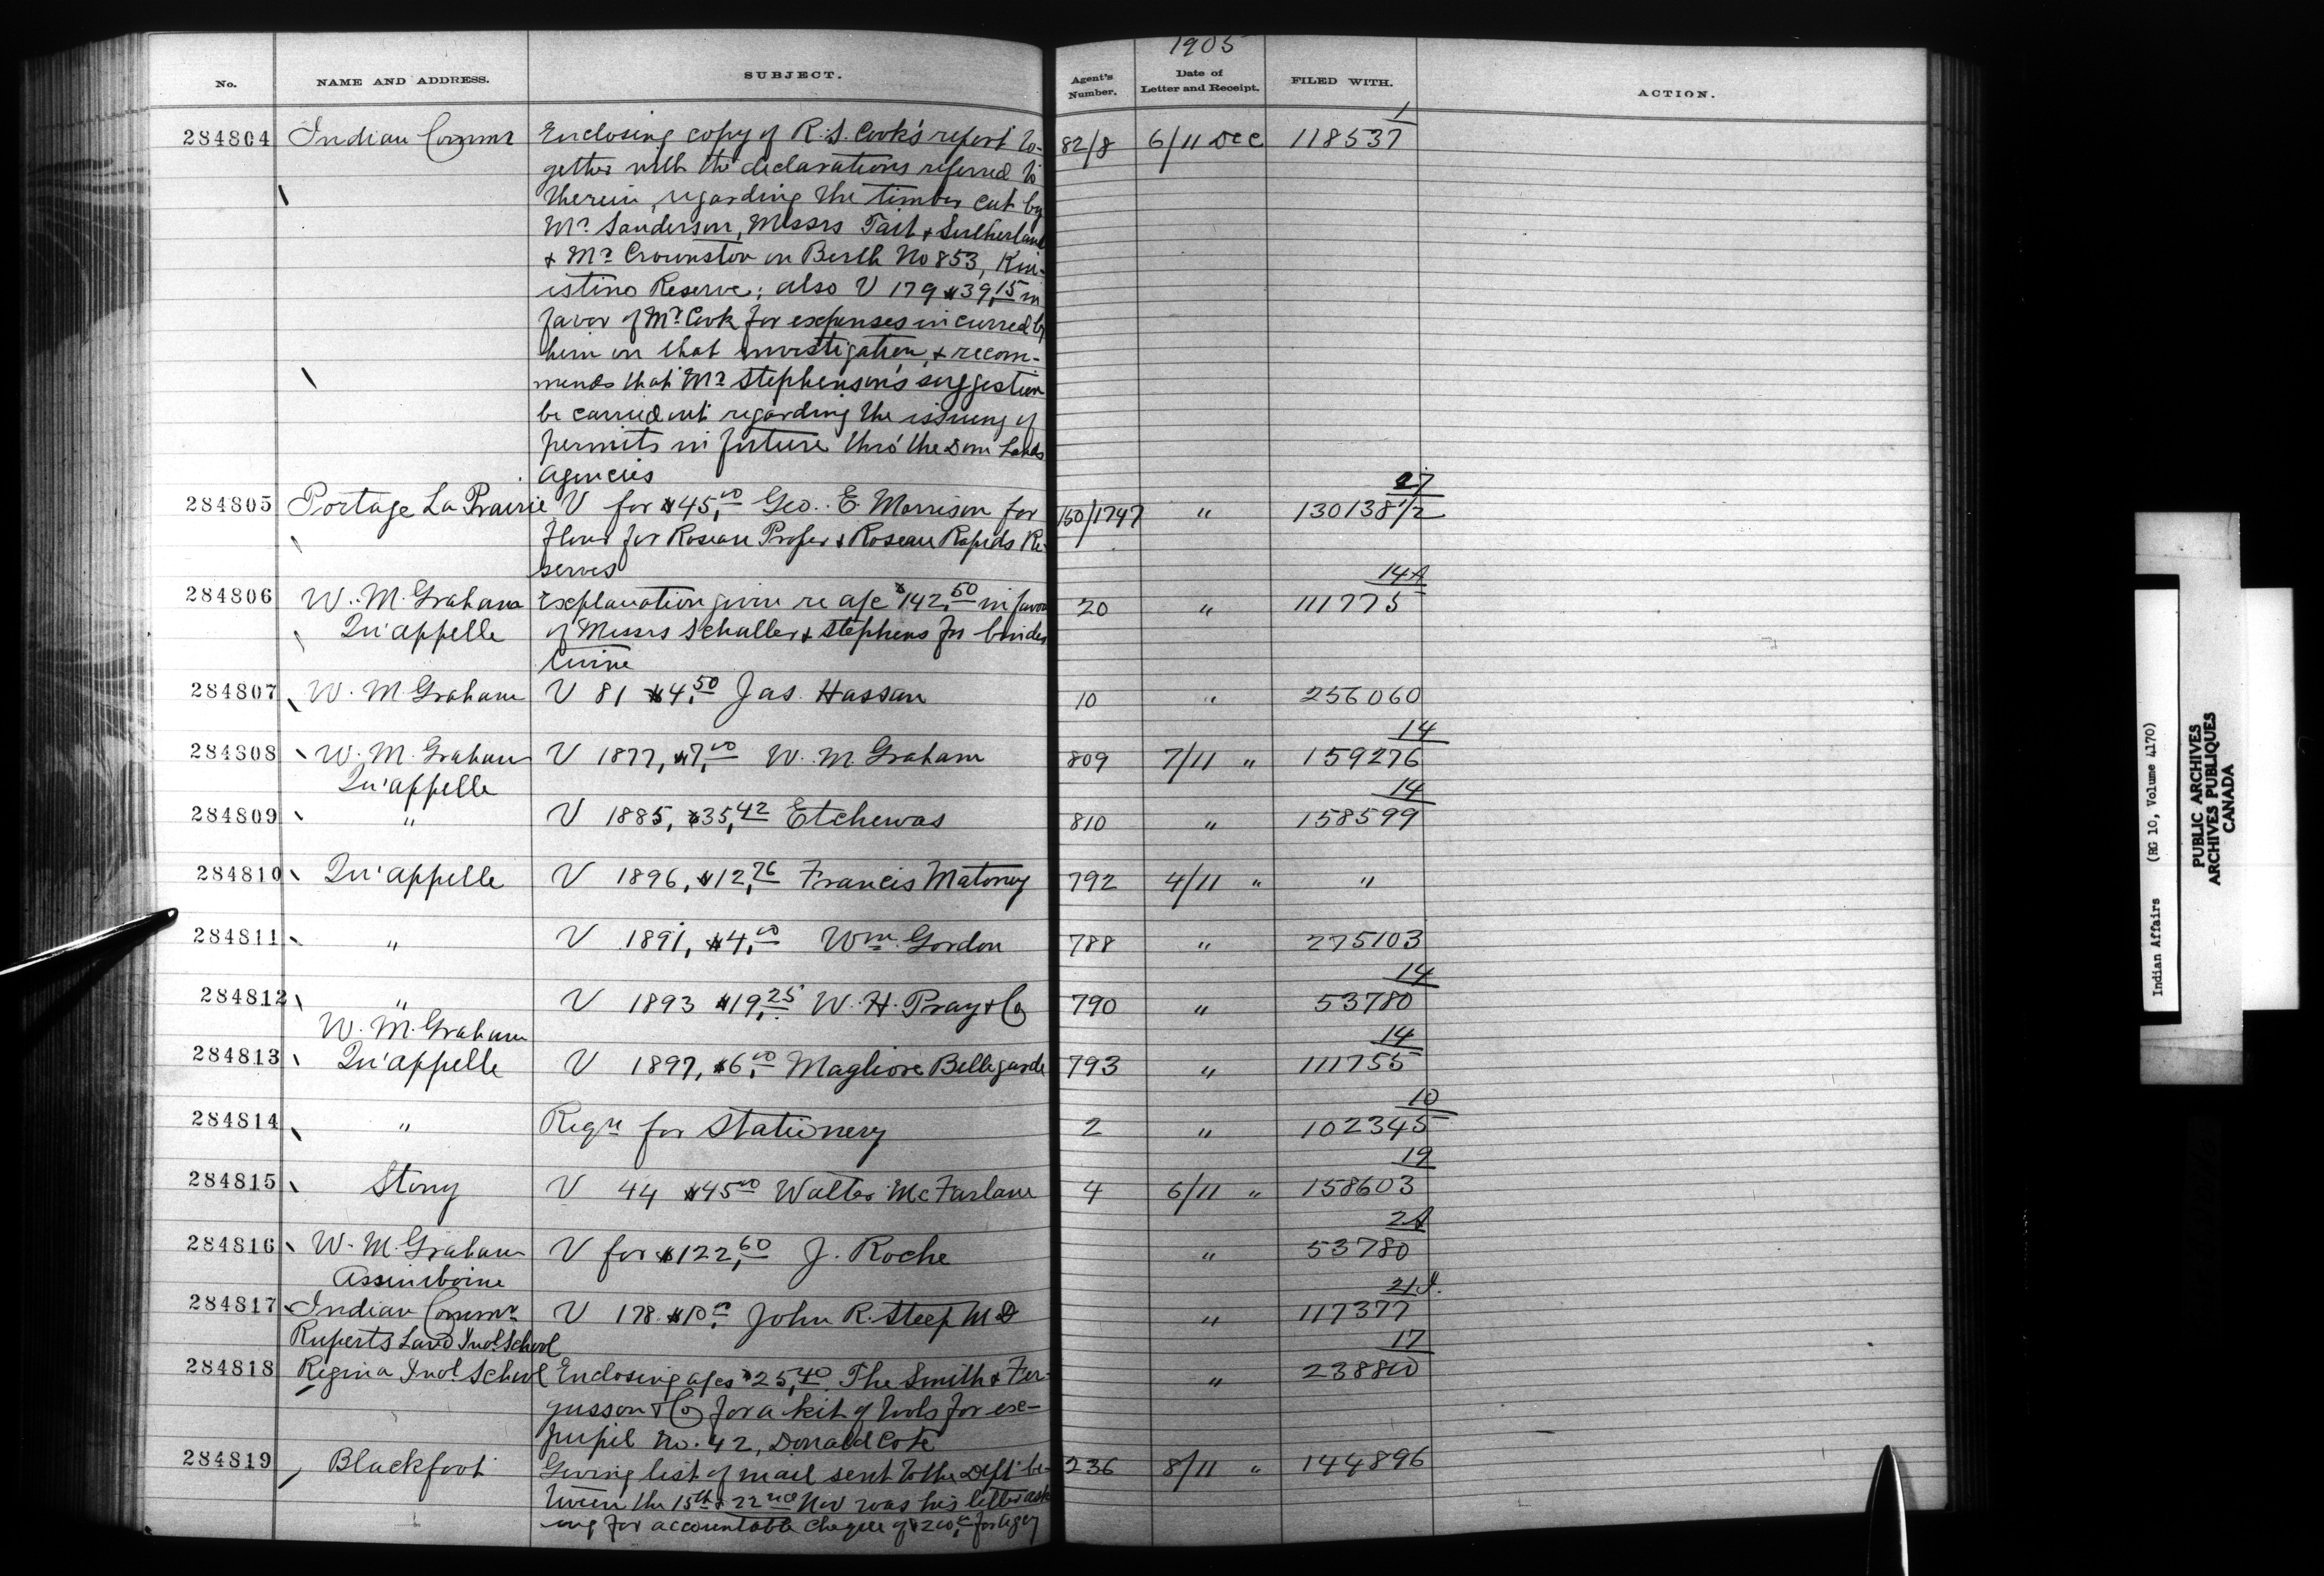 1905
No. NAME AND ADDRESS. SUBJECT. Agent's Number. Date of Letter and Receipt. FILED WITH. ACTION.
1
284804 Indian Commr Enclosing copy of R.S. Cook's report to- 82/8 6/11 Dec 118537
gether with the declarations referred to
therein, regarding the timber cut by
Mr Sanderson, Messrs Tait & Sutherland
& Mr Crownston on Berth No 853, Kin-
istino Reserve; also V 179 $39.15 in
favor of Mr Cook for expenses incurred by
him on that investigation, & recom-
mends that Mr Stephenson's suggestion
be carried out regarding the issuing of
permits in future thro' the Dom Lands
Agencies
27
284805 Portage La Prairie V for $45.00 Geo. E. Morrison for 160/1747 " 130138 1/2
flour for Roseau Proper & Roseau Rapids Re-
serves
14A
284806 W. M. Graham Explanation given re a/c $142.50 in favor 20 " 111775
Qu'appelle of Messrs Schaller & Stephens for binder
twine
284807 W. M. Graham V 81 $4.50 Jas. Hassan 10 " 256060
14
284808 W. M. Graham V 1877, $7.00 W. M Graham 809 7/11 " 159276
Qu'appelle
14
284809 " V 1885, $35.42 Etchewas 810 " 158599
284810 Qu'appelle V 1896, $12.76 Francis 792 4/11 " "
284811 " V 1891, $4.00 Wm. Gordon 788 " 275103
14
284812 " V 1893 $19.25 W. H. Pray & Co 790 " 53780
W. M. Graham
14
284813 Qu'appelle V 1897, $6.00 Magliore Bellegarde 793 " 111755
10
284814 " Reqn for Stationery 2 " 102345
19
284815 Stony V 44 $45.00 Walter McFarlane 4 6/11 " 158603
2A
284816 W. M. Graham V for $122.60 J. Roche " 53780
Assiniboine
21J.
284817 Indian Commr V 178. $10.00 John R. Steep M D " 117377
Ruperts Land Ind. School
17
284818 Regina Ind. School Enclosing a/cs $25.40 The Smith & Fer- " 238800
gusson & Co for a kit of tools for ex-
pupil No. 42, Donald Cote
284819 Blackfoot Giving list of mail sent to the Dept be- 236 8/11 " 144896
tween the 15th & 22nd Nov was his letter ask
ing for accountable cheque of $200.00 for agcy
Indian Affairs (RG 10, Volume 4170)
PUBLIC ARCHIVES
ARCHIVES PUBLIQUES
CANADA